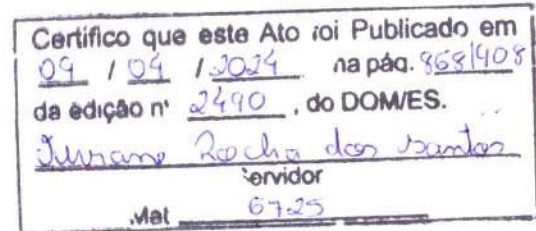 Certifico que este Ato foi Publicado em
09 / 04 / 2024 na pág. 868/908
da edição nº 2490, do DOM/ES.
Rocha dos Santos
Servidor
Mat 6725